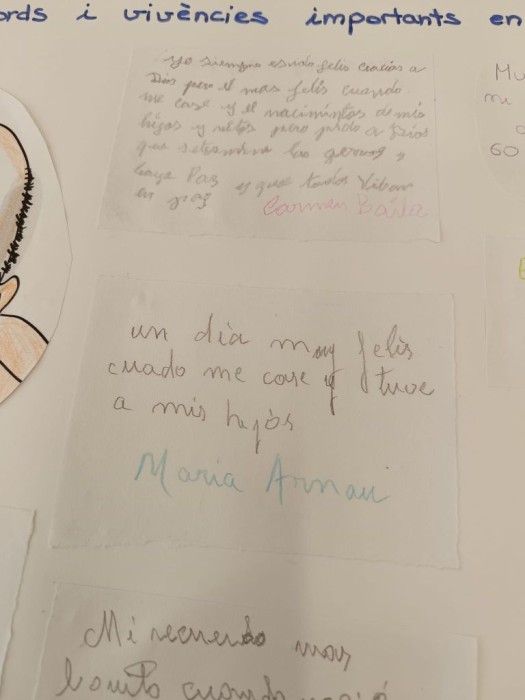 ords i vivències importants en
yo siempre esudo felis gracias a
Dios pero el mas felis cuando
me case y el nacimintos de mis
hijos y nitos pero pido a Dios
que se termine las gerras y
haya Paz es que todos Viban
en paz Carmen
Mu
mi
60
un dia muy felis
cuado me case y tuve
a mis hijos
Maria Arnau
Mi recuerdo mas
bonito cuando